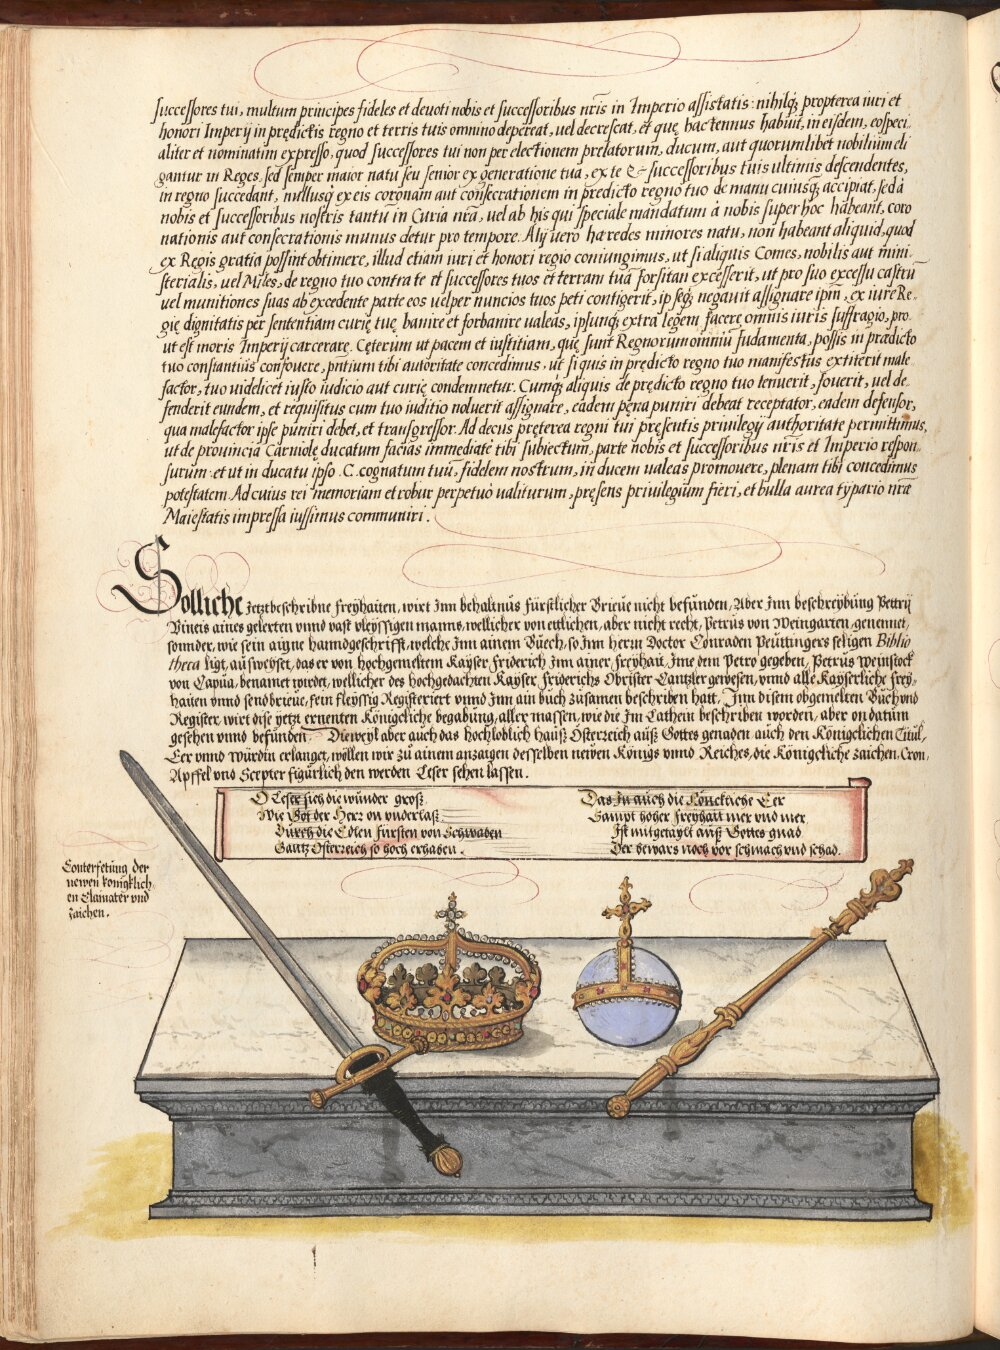 successores tui, multum principes fideles et deuoti nobis et successoribus nr̃is in Imperio assistatis: nihilq́; propterea iuri et
honori Imperij in prędictis regno et terris tuis omnino depereat, uel decrescat, et quę hactennus habuit, in eisdem, eo speci
aliter et nominatim expresso, quod successores tui non per electionem prelatorum, ducum, aut quorumlibet nobilium eli
gantur in Reges, sed semper maior natu seu senior ex generatione tua, ex te & successoribus tuis ultimis descendentes,
in regno succedant, nullusq́ ex eis coronam aut consecrationem in predicto regno tuo de manu cuiusq́; accipiat, sed à
nobis et successoribus nostris tantũ in Curia nr̃a, uel ab his qui speciale mandatum à nobis super hoc habeant, coro
nationis aut consecrationis munus detur pro tempore. Alij uero hæredes minores natu, non habeant aliquid, quod
ex Regis gratia possint obtinere, illud etiam iuri et honori regio coniungimus, ut si aliquis Comes, nobilis aut mini
sterialis, uel Miles, de regno tuo contra te et successores tuos et terram tuã forsitan excesserit, ut pro suo excessu castrũ
uel munitiones suas ab excedente parte eos uel per nuncios tuos peti contigerit, ipseq́; negauit assignare ipm̃, ex iure Re-
gię dignitatis per sententiam curię tuę banire et forbanire ualeas, ipsunq́; extra legem facere omnis iuris suffragio, pro
ut est moris Imperij carcerare. Cęterum ut pacem et iustitiam, quę sunt Regnorum omniũ fudamenta, possis in prædicto
tuo constantius confouere, pñtium tibi autoritate concedimus, ut si quis in prędicto regno tuo manifestus extiterit male
factor, tuo videlicet iusto iudicio aut curię condemnetur. Cumq́; aliquis de prędicto regno tuo tenuerit, fouerit, uel de-
fenderit eundem, et requisitus cum tuo iuditio noluerit assignare, eadem pęna puniri debeat receptator, eadem defensor,
qua malefactor ipse puniri debet, et transgressor. Ad decus pręterea regni tui pręsentis priuilegij authoritate permittimus,
ut de prouincia Carniolę ducatum facias immediatè tibi subiectum, parte nobis et successoribus nr̃is et Imperio respon
surum: et ut in ducatu ipso .C. cognatum tuũ, fidelem nostrum, in ducem ualeas promouere, plenam tibi concedimus
potestatem. Ad cuius rei memoriam et robur perpetuò ualiturum, pręsens priuilegium fieri, et bulla aurea typario nræ
Maiestatis impressa iussimus communiri.
Solliche jetztbeschribne freyhaiten, wirt Inn behaltnus fürstlicher Brieue nicht befunden, Aber Inn beschreybung Pettrij
Vineis aines gelerten vnnd vast vleyssigen manns, wellicher von ettlichen, aber nicht recht, Petrus von Weingarten genennet,
sonnder, wie sein aigne hanndgeschrifft, welche Inn ainem Buech, so Inn herrn Doctor Conraden Peuttingers seligen Biblio
theca ligt, außweyset, das er von hochgemeltem Kayser Friderich Inn ainer freyhait, Ime dem Petro gegeben, Petrus Weinstock
von Capua, benamet wirdet, wellicher des hochgedachten Kayser Friderichs Obrister Cantzler gewesen, vnnd alle Kayserliche frey-
haiten vnnd sendbrieue, sein fleyssig Registeriert vnnd Inn ain buch zusamen beschriben hatt. Inn disem obgemelten Buch vnd
Register, wirt dise yetzt ernenten Königcliche begabung, aller massen, wie die Im Lathein beschriben worden, aber on datum
gesehen vnnd befunden. Dieweyl aber auch das hochloblich hauß Osterreich auß Gottes genaden auch den Königclichen Titul,
Eer vnnd würdin erlanget, wöllen wir zu ainem anzaigen desselben newen Königs vnnd Reiches, die Königcliche zaichen, Cron,
Apffel vnd Scepter figürlich den werden Leser sehen lassen.
O Leser sich die wunder groß
Wie Got der Herr on vnderlaß
Durch die Edlen fürsten von Schwaben
Gantz Osterreich so hoch erhaben.
Das In auch die Königcliche Eer
Sampt hoher freyhait mer vnd mer
Ist mitgetaylt auß Gottes gnad
Der bewars noch vor schmach vnd schad.
Conterfetung der
newen königklich-
en Clainater vnd
zaichen.